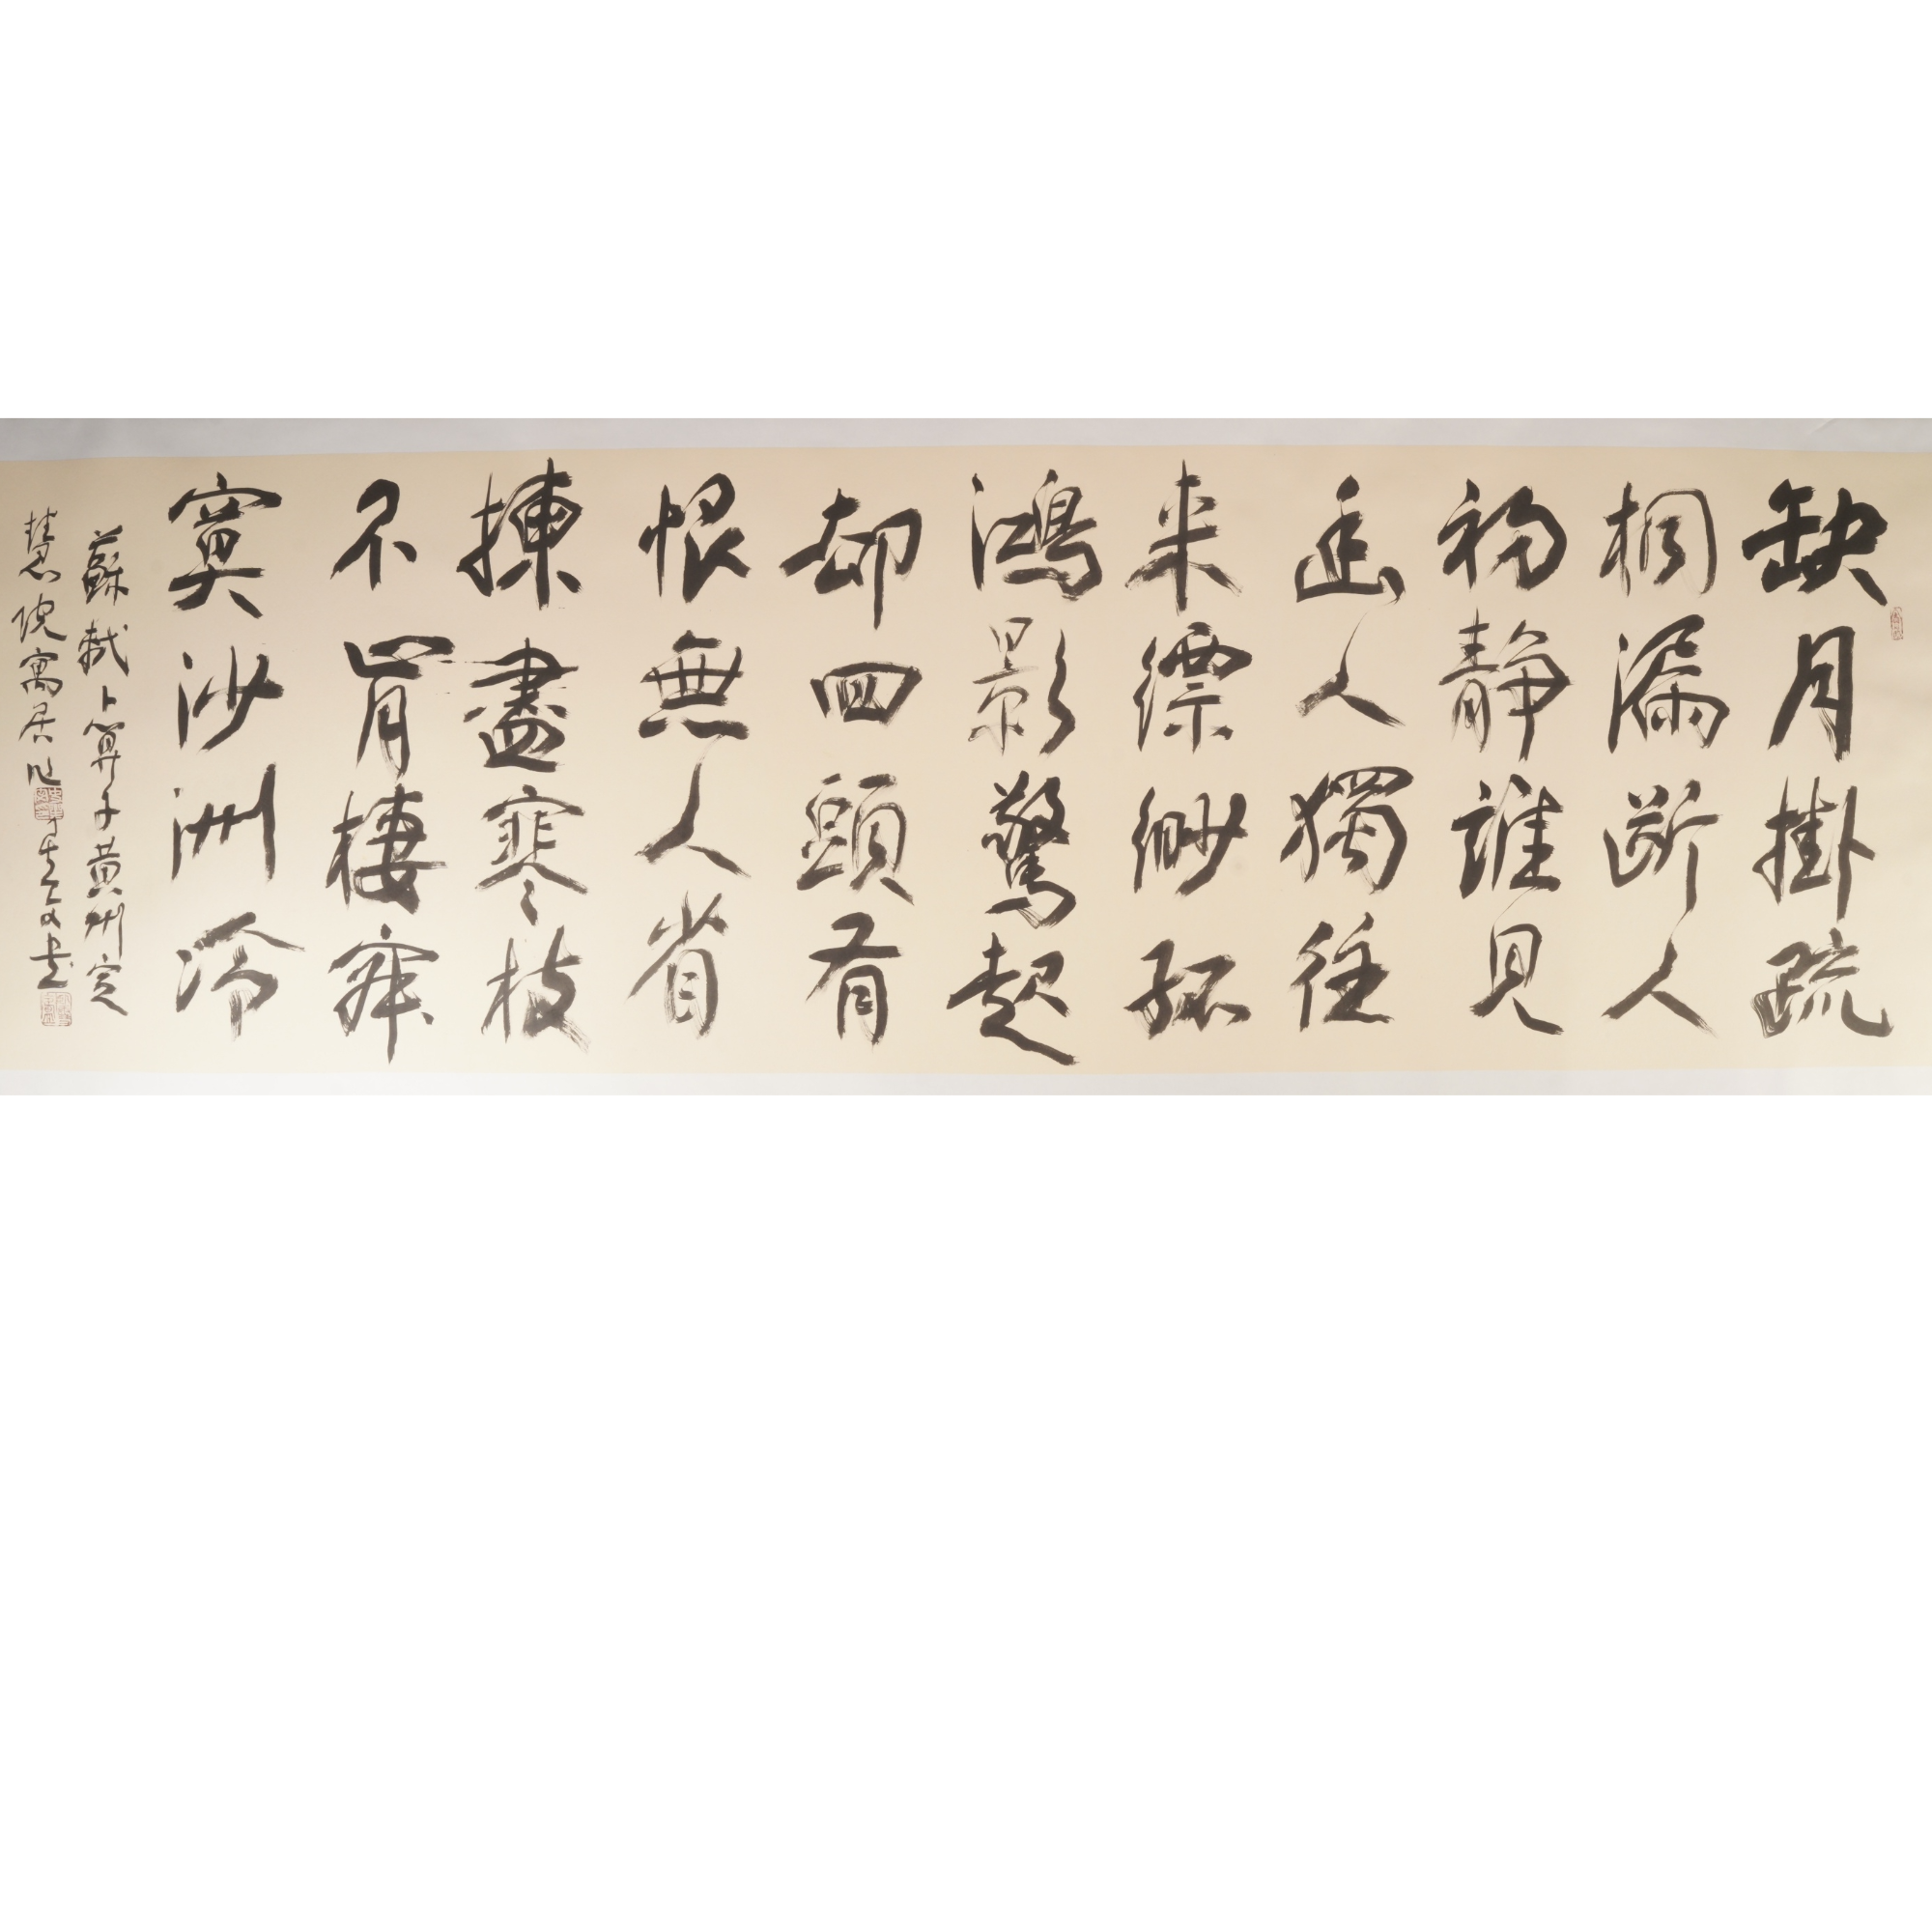 缺月掛疏
桐漏断人
初静誰見
幽人獨往
来縹緲孤
鴻影驚起
却回頭有
恨無人省
揀盡寒枝
不肯棲寂
寞沙洲冷
蘇軾卜算子黄州定
慧院寓居作